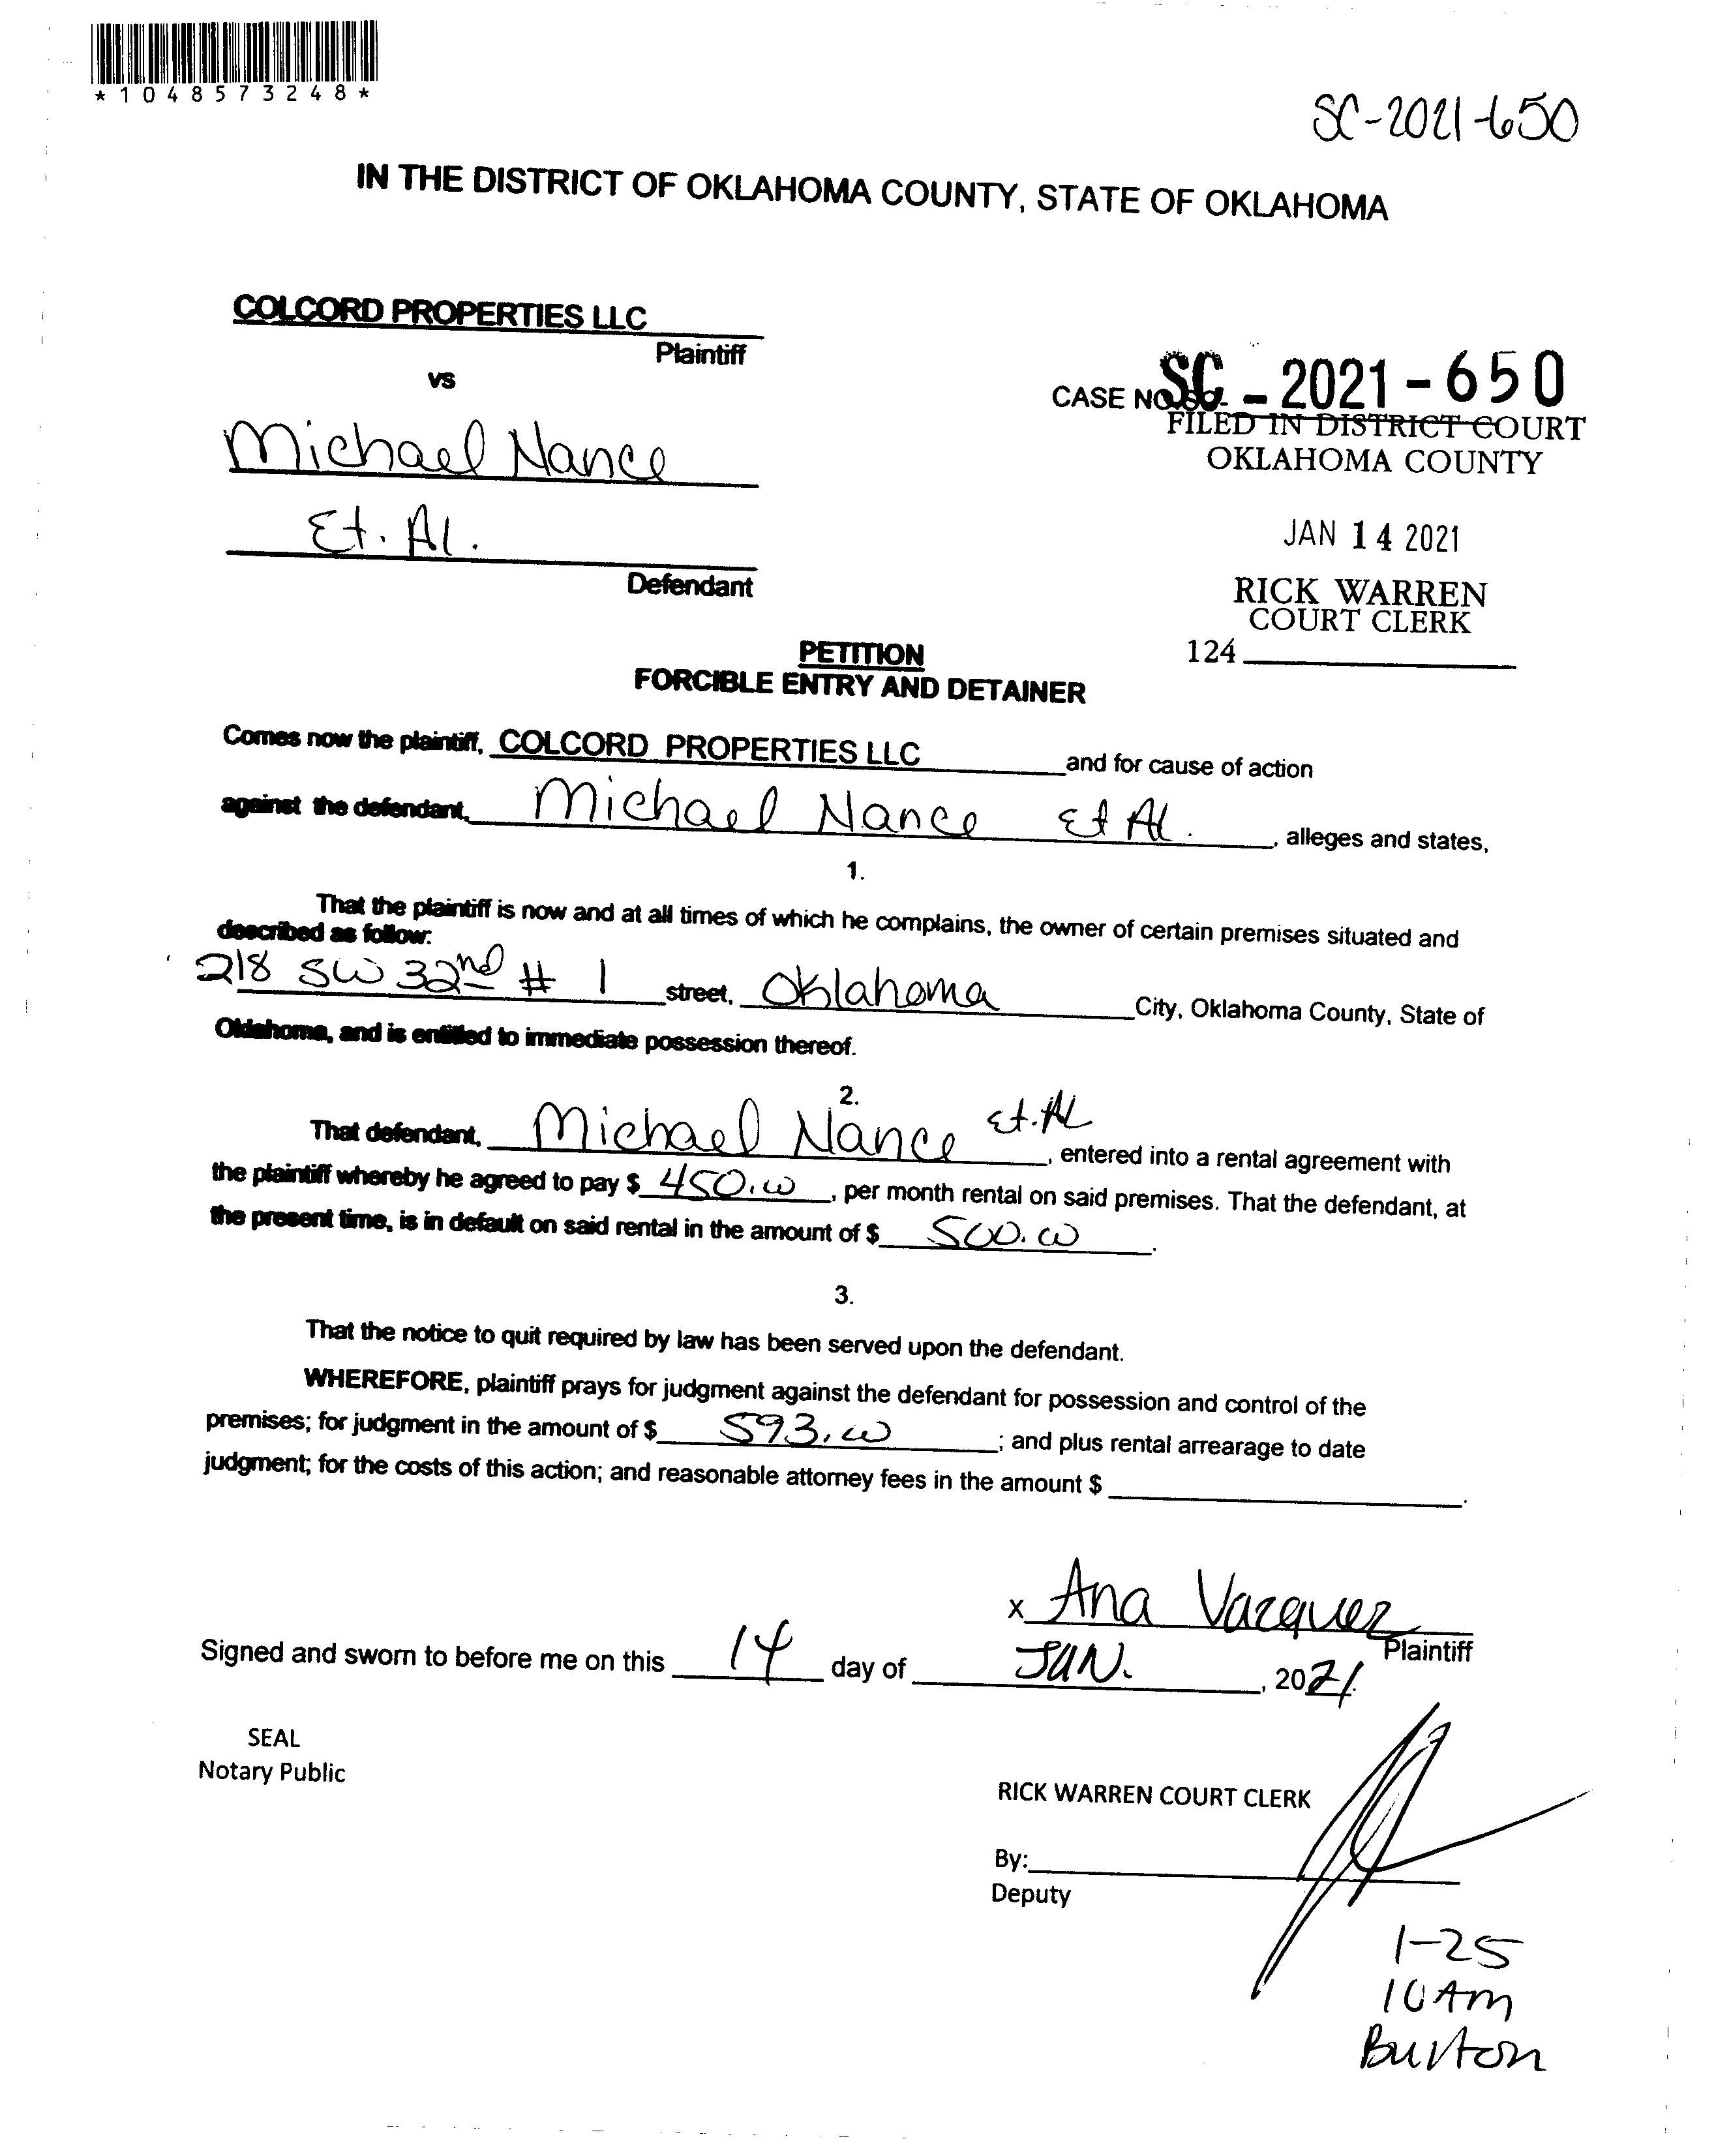 *1048573248*
SC-2021-650
IN THE DISTRICT OF OKLAHOMA COUNTY, STATE OF OKLAHOMA
COLCORD PROPERTIES LLC
Plaintiff
vs
CASE NO. SC-2021-650
FILED IN DISTRICT COURT
OKLAHOMA COUNTY
Michael Nance
Et. Al.
JAN 14 2021
Defendant
RICK WARREN
COURT CLERK
124
PETITION
FORCIBLE ENTRY AND DETAINER
Comes now the plaintiff, COLCORD PROPERTIES LLC and for cause of action
against the defendant, Michael Nance Et Al. , alleges and states,
1.
That the plaintiff is now and at all times of which he complains, the owner of certain premises situated and
described as follow:
218 SW 32nd # 1 street, Oklahoma City, Oklahoma County, State of
Oklahoma, and is entitled to immediate possession thereof.
2.
That defendant, Michael Nance Et. Al , entered into a rental agreement with
the plaintiff whereby he agreed to pay $ 450.00 , per month rental on said premises. That the defendant, at
the present time, is in default on said rental in the amount of $ 500.00 .
3.
That the notice to quit required by law has been served upon the defendant.
WHEREFORE, plaintiff prays for judgment against the defendant for possession and control of the
premises; for judgment in the amount of $ 593.00 ; and plus rental arrearage to date
judgment; for the costs of this action; and reasonable attorney fees in the amount $ .
x Ana Vazquez
Plaintiff
Signed and sworn to before me on this 14 day of JAN. , 2021.
SEAL
Notary Public
RICK WARREN COURT CLERK
By:
Deputy
1-25
10Am
Burton